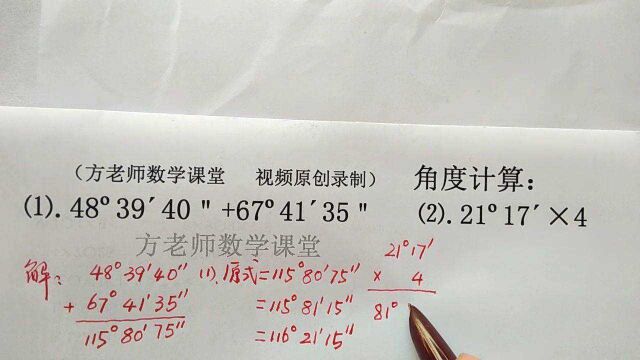 （方老师数学课堂 视频原创录制） 角度计算：
(1).48º39′40"+67º41′35" (2).21º17′×4
方老师数学课堂
解： 48°39′40″
+ 67°41′35″
115°80′75″
(1).原式=115°80′75″
=115°81′15″
=116°21′15″
21°17′
× 4
81°